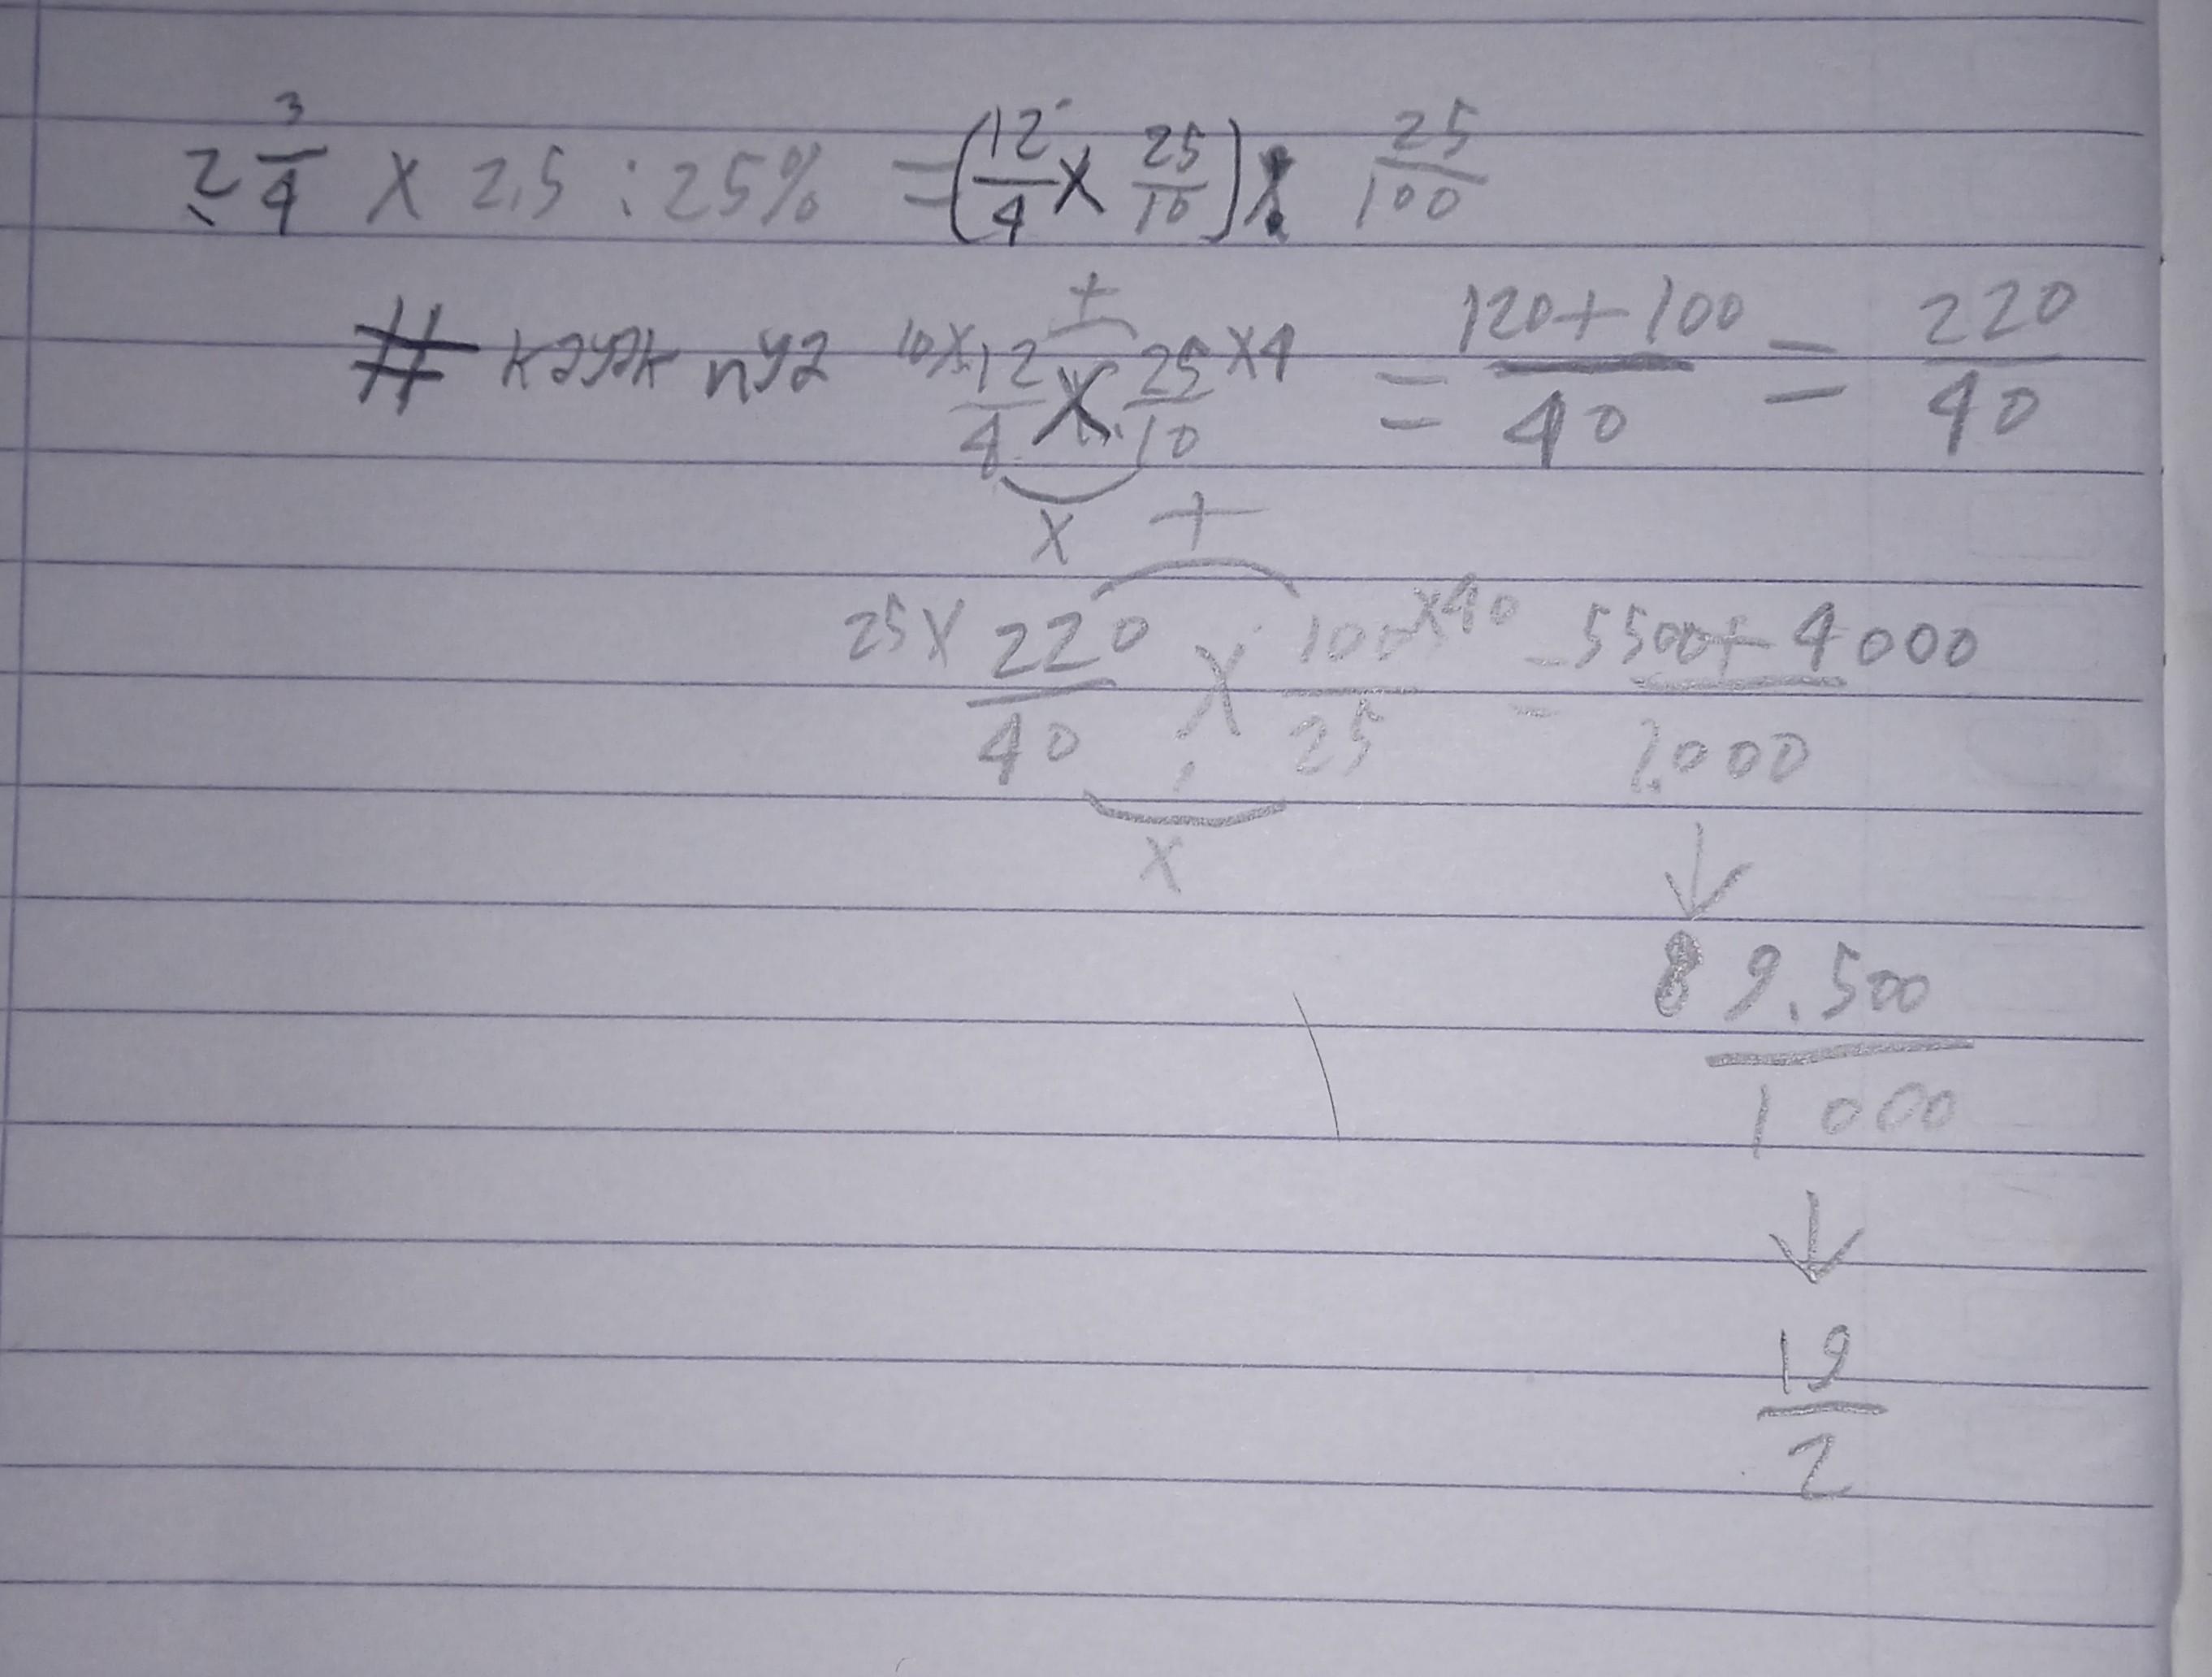 2 3/4 × 2,5 : 25% = (12/4 × 25/10) : 25/100
# kayak nya 10× 12/4 × 25/10 ×4 = 120+100/40 = 220/40
+
×
+
25× 220/40 × 100/25 ×40 = 5500+4000/1.000
×
↓
9.500/1000
↓
19/2